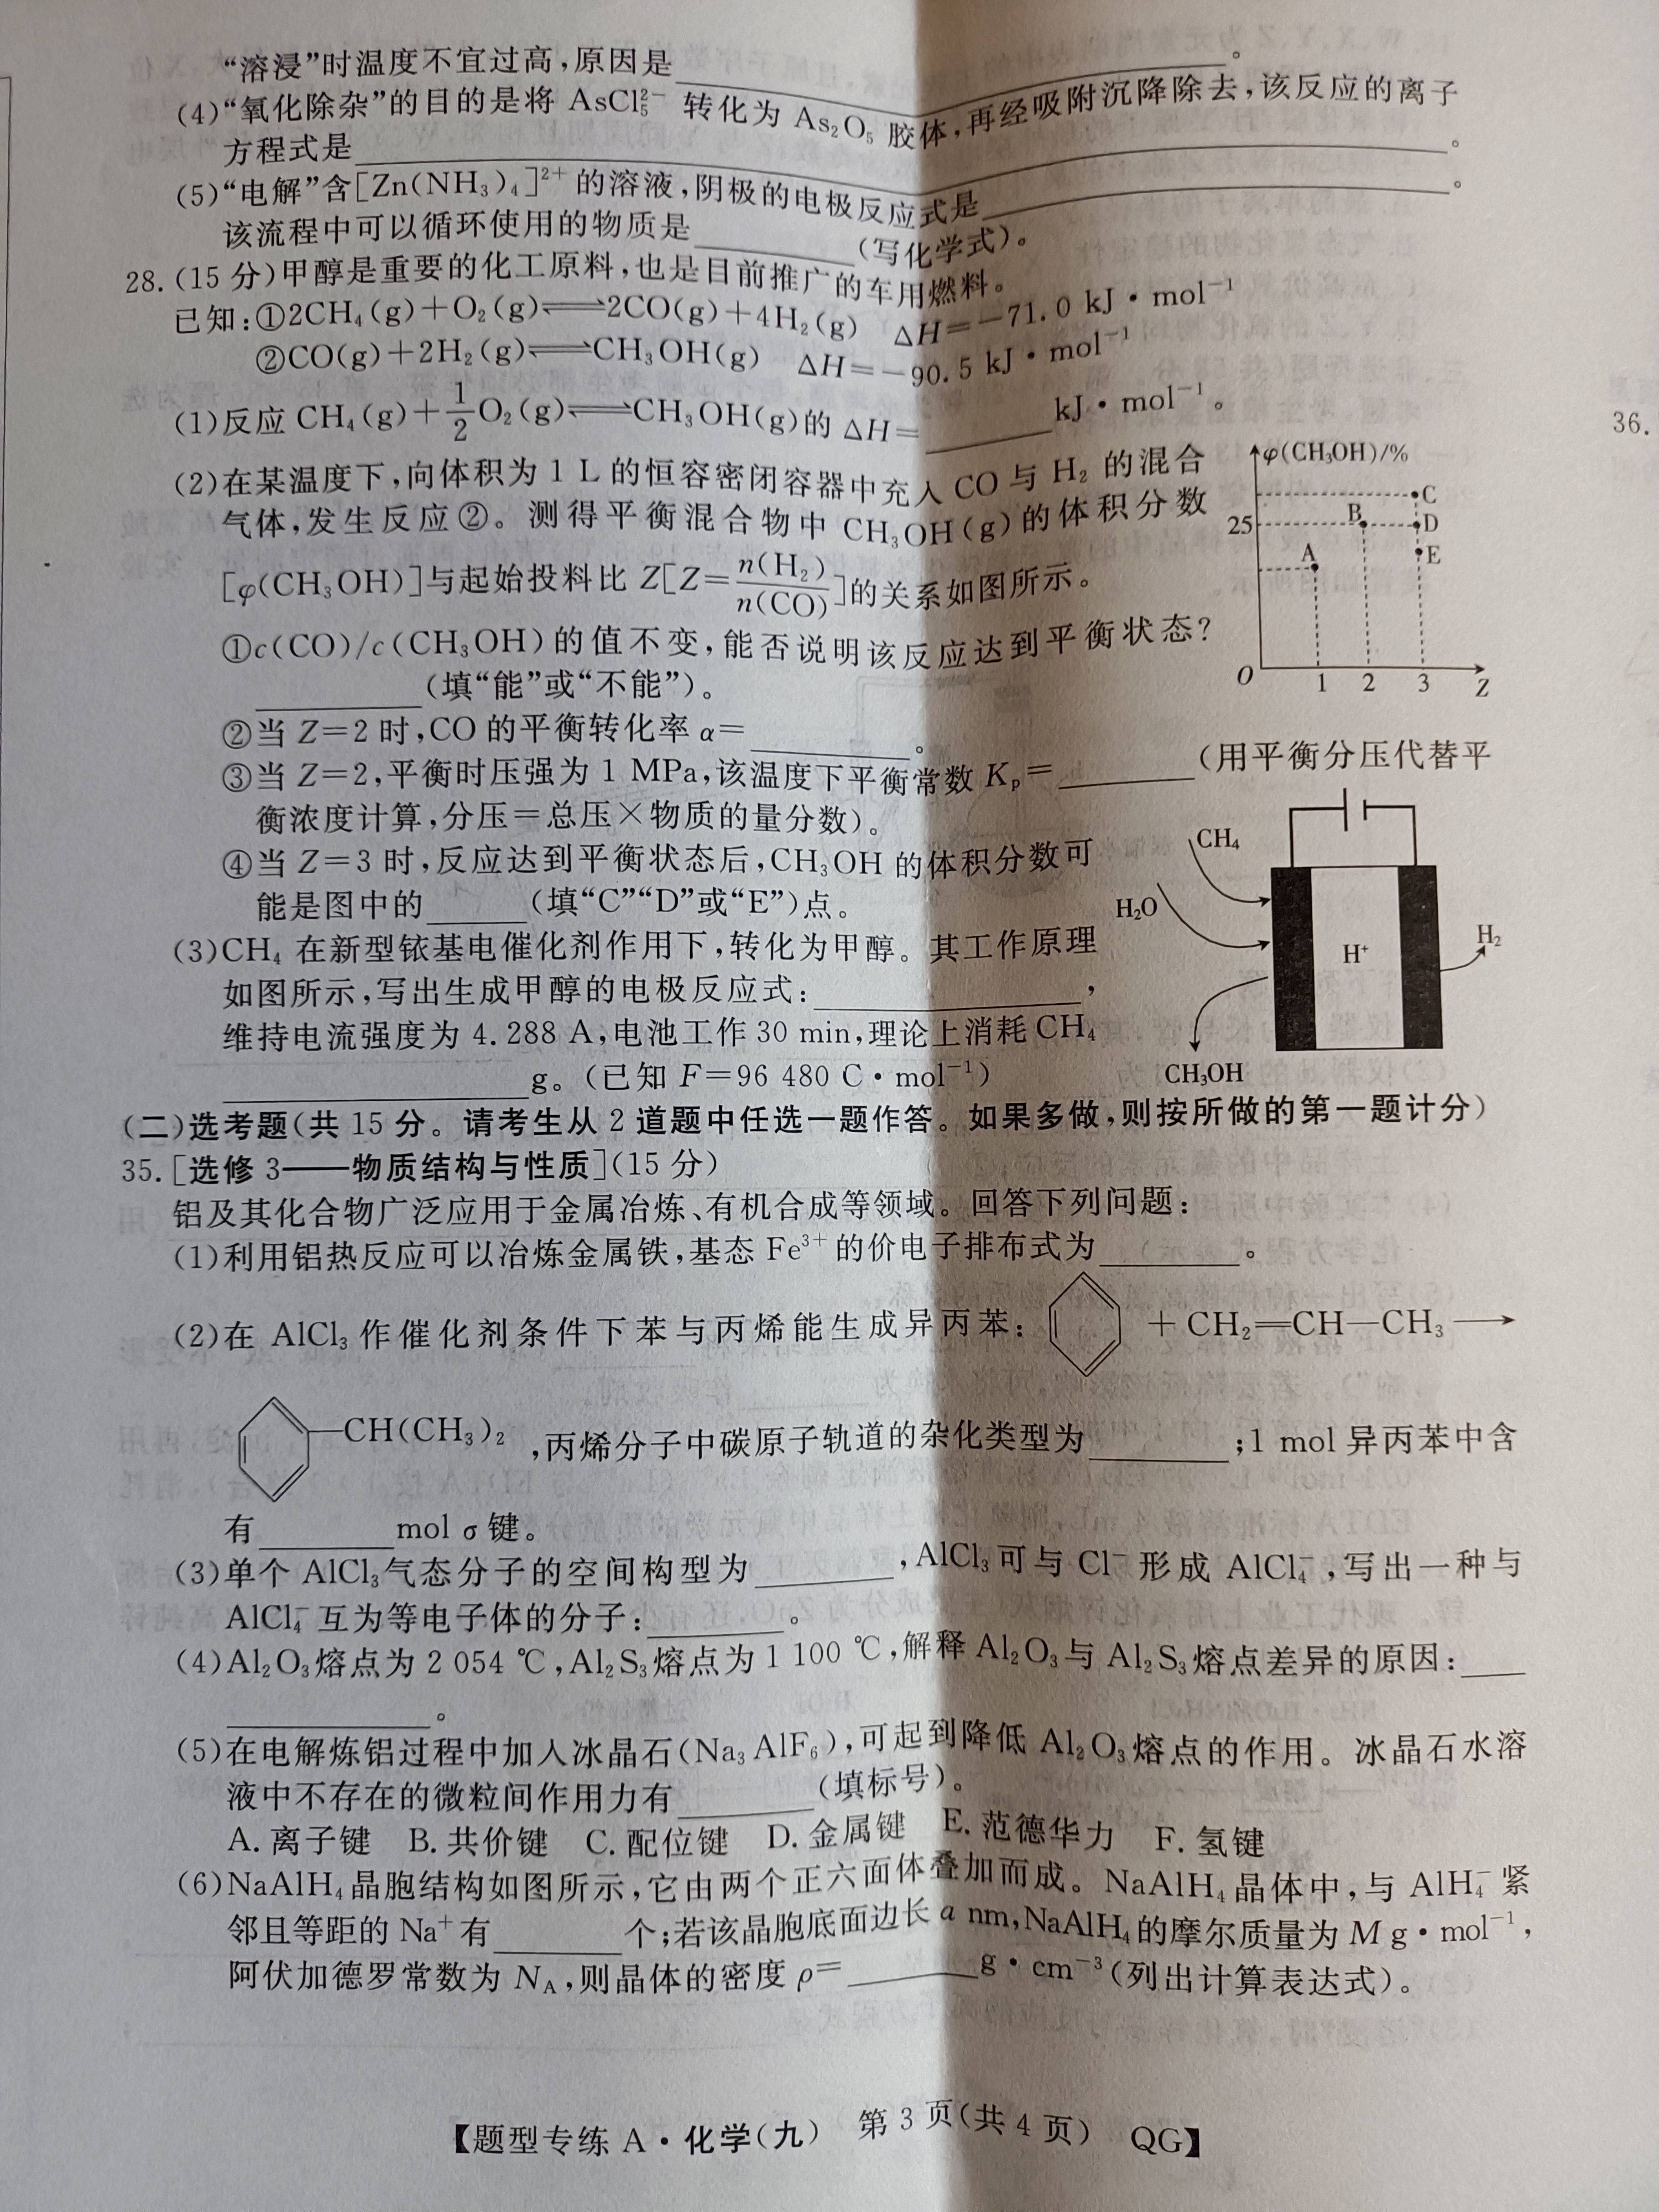 “溶浸”时温度不宜过高,原因是________。
(4)“氧化除杂”的目的是将 AsCl₅²⁻ 转化为 As₂O₅ 胶体,再经吸附沉降除去,该反应的离子
方程式是________。
(5)“电解”含[Zn(NH₃)₄]²⁺ 的溶液,阴极的电极反应式是________。
该流程中可以循环使用的物质是________(写化学式)。
28.(15 分)甲醇是重要的化工原料,也是目前推广的车用燃料。
已知:①2CH₄(g)+O₂(g)⇌2CO(g)+4H₂(g) ΔH=−71.0 kJ·mol⁻¹
②CO(g)+2H₂(g)⇌CH₃OH(g) ΔH=−90.5 kJ·mol⁻¹
(1)反应 CH₄(g)+1/2O₂(g)⇌CH₃OH(g)的 ΔH=________kJ·mol⁻¹。
(2)在某温度下,向体积为 1 L 的恒容密闭容器中充入 CO 与 H₂ 的混合
气体,发生反应②。测得平衡混合物中 CH₃OH(g)的体积分数
[φ(CH₃OH)]与起始投料比 Z[Z=n(H₂)/n(CO)]的关系如图所示。
①c(CO)/c(CH₃OH)的值不变,能否说明该反应达到平衡状态?
________(填“能”或“不能”)。
②当 Z=2 时,CO 的平衡转化率 α=________。
③当 Z=2,平衡时压强为 1 MPa,该温度下平衡常数 Kₚ=________(用平衡分压代替平
衡浓度计算,分压=总压×物质的量分数)。
④当 Z=3 时,反应达到平衡状态后,CH₃OH 的体积分数可
能是图中的________(填“C”“D”或“E”)点。
φ(CH₃OH)/%
C
25
B
D
A
E
O
1
2
3
Z
(3)CH₄ 在新型铱基电催化剂作用下,转化为甲醇。其工作原理
如图所示,写出生成甲醇的电极反应式:________,
维持电流强度为 4.288 A,电池工作 30 min,理论上消耗 CH₄
________g。(已知 F=96 480 C·mol⁻¹)
CH₄
H₂O
H⁺
H₂
CH₃OH
(二)选考题(共 15 分。请考生从 2 道题中任选一题作答。如果多做,则按所做的第一题计分)
35.[选修 3——物质结构与性质](15 分)
铝及其化合物广泛应用于金属冶炼、有机合成等领域。回答下列问题:
(1)利用铝热反应可以冶炼金属铁,基态 Fe³⁺ 的价电子排布式为________。
(2)在 AlCl₃ 作催化剂条件下苯与丙烯能生成异丙苯: + CH₂=CH—CH₃ ⟶
—CH(CH₃)₂ ,丙烯分子中碳原子轨道的杂化类型为________;1 mol 异丙苯中含
有________mol σ 键。
(3)单个 AlCl₃气态分子的空间构型为________,AlCl₃可与 Cl⁻ 形成 AlCl₄⁻,写出一种与
AlCl₄⁻ 互为等电子体的分子:________。
(4)Al₂O₃熔点为 2 054 ℃,Al₂S₃熔点为 1 100 ℃,解释 Al₂O₃与 Al₂S₃熔点差异的原因:____
________。
(5)在电解炼铝过程中加入冰晶石(Na₃AlF₆),可起到降低 Al₂O₃熔点的作用。冰晶石水溶
液中不存在的微粒间作用力有________(填标号)。
A. 离子键 B. 共价键 C. 配位键 D. 金属键 E. 范德华力 F. 氢键
(6)NaAlH₄晶胞结构如图所示,它由两个正六面体叠加而成。NaAlH₄晶体中,与 AlH₄⁻ 紧
邻且等距的 Na⁺有________个;若该晶胞底面边长 a nm,NaAlH₄的摩尔质量为 M g·mol⁻¹,
阿伏加德罗常数为 N_A,则晶体的密度 ρ=________g·cm⁻³(列出计算表达式)。
【题型专练 A·化学(九) 第 3 页(共 4 页) QG】
36.